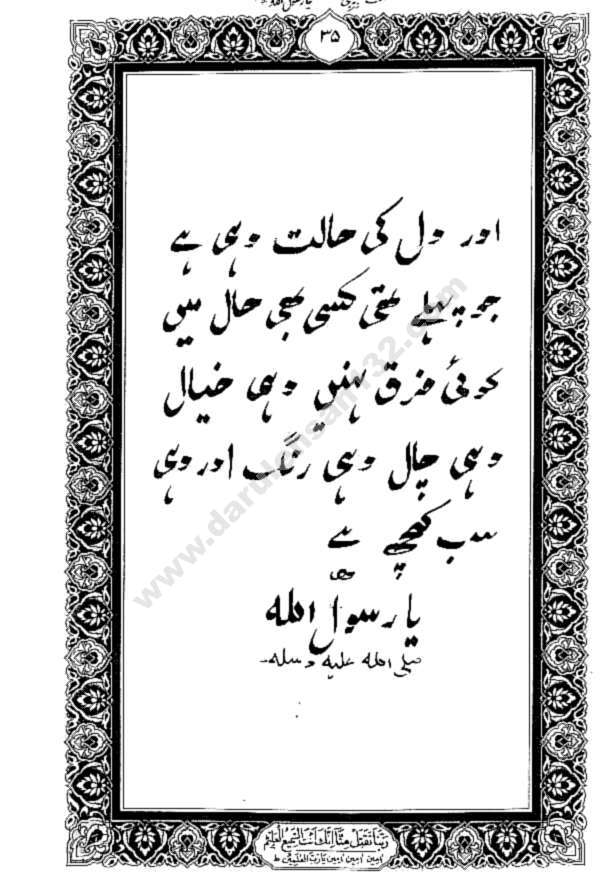 ۳۵
اور دل کی حالت وہی ہے
جو پہلے تھی کسی بھی حال میں
کوئی فرق نہیں وہی خیال
وہی چال وہی رنگ اور وہی
سب کچھ ہے
یا رسول اللہ
صلی اللہ علیہ وسلم
ربنا تقبل منا انک انت السمیع العلیم
امین امین امین یا رب العلمین ط
www.darulehsan132.com